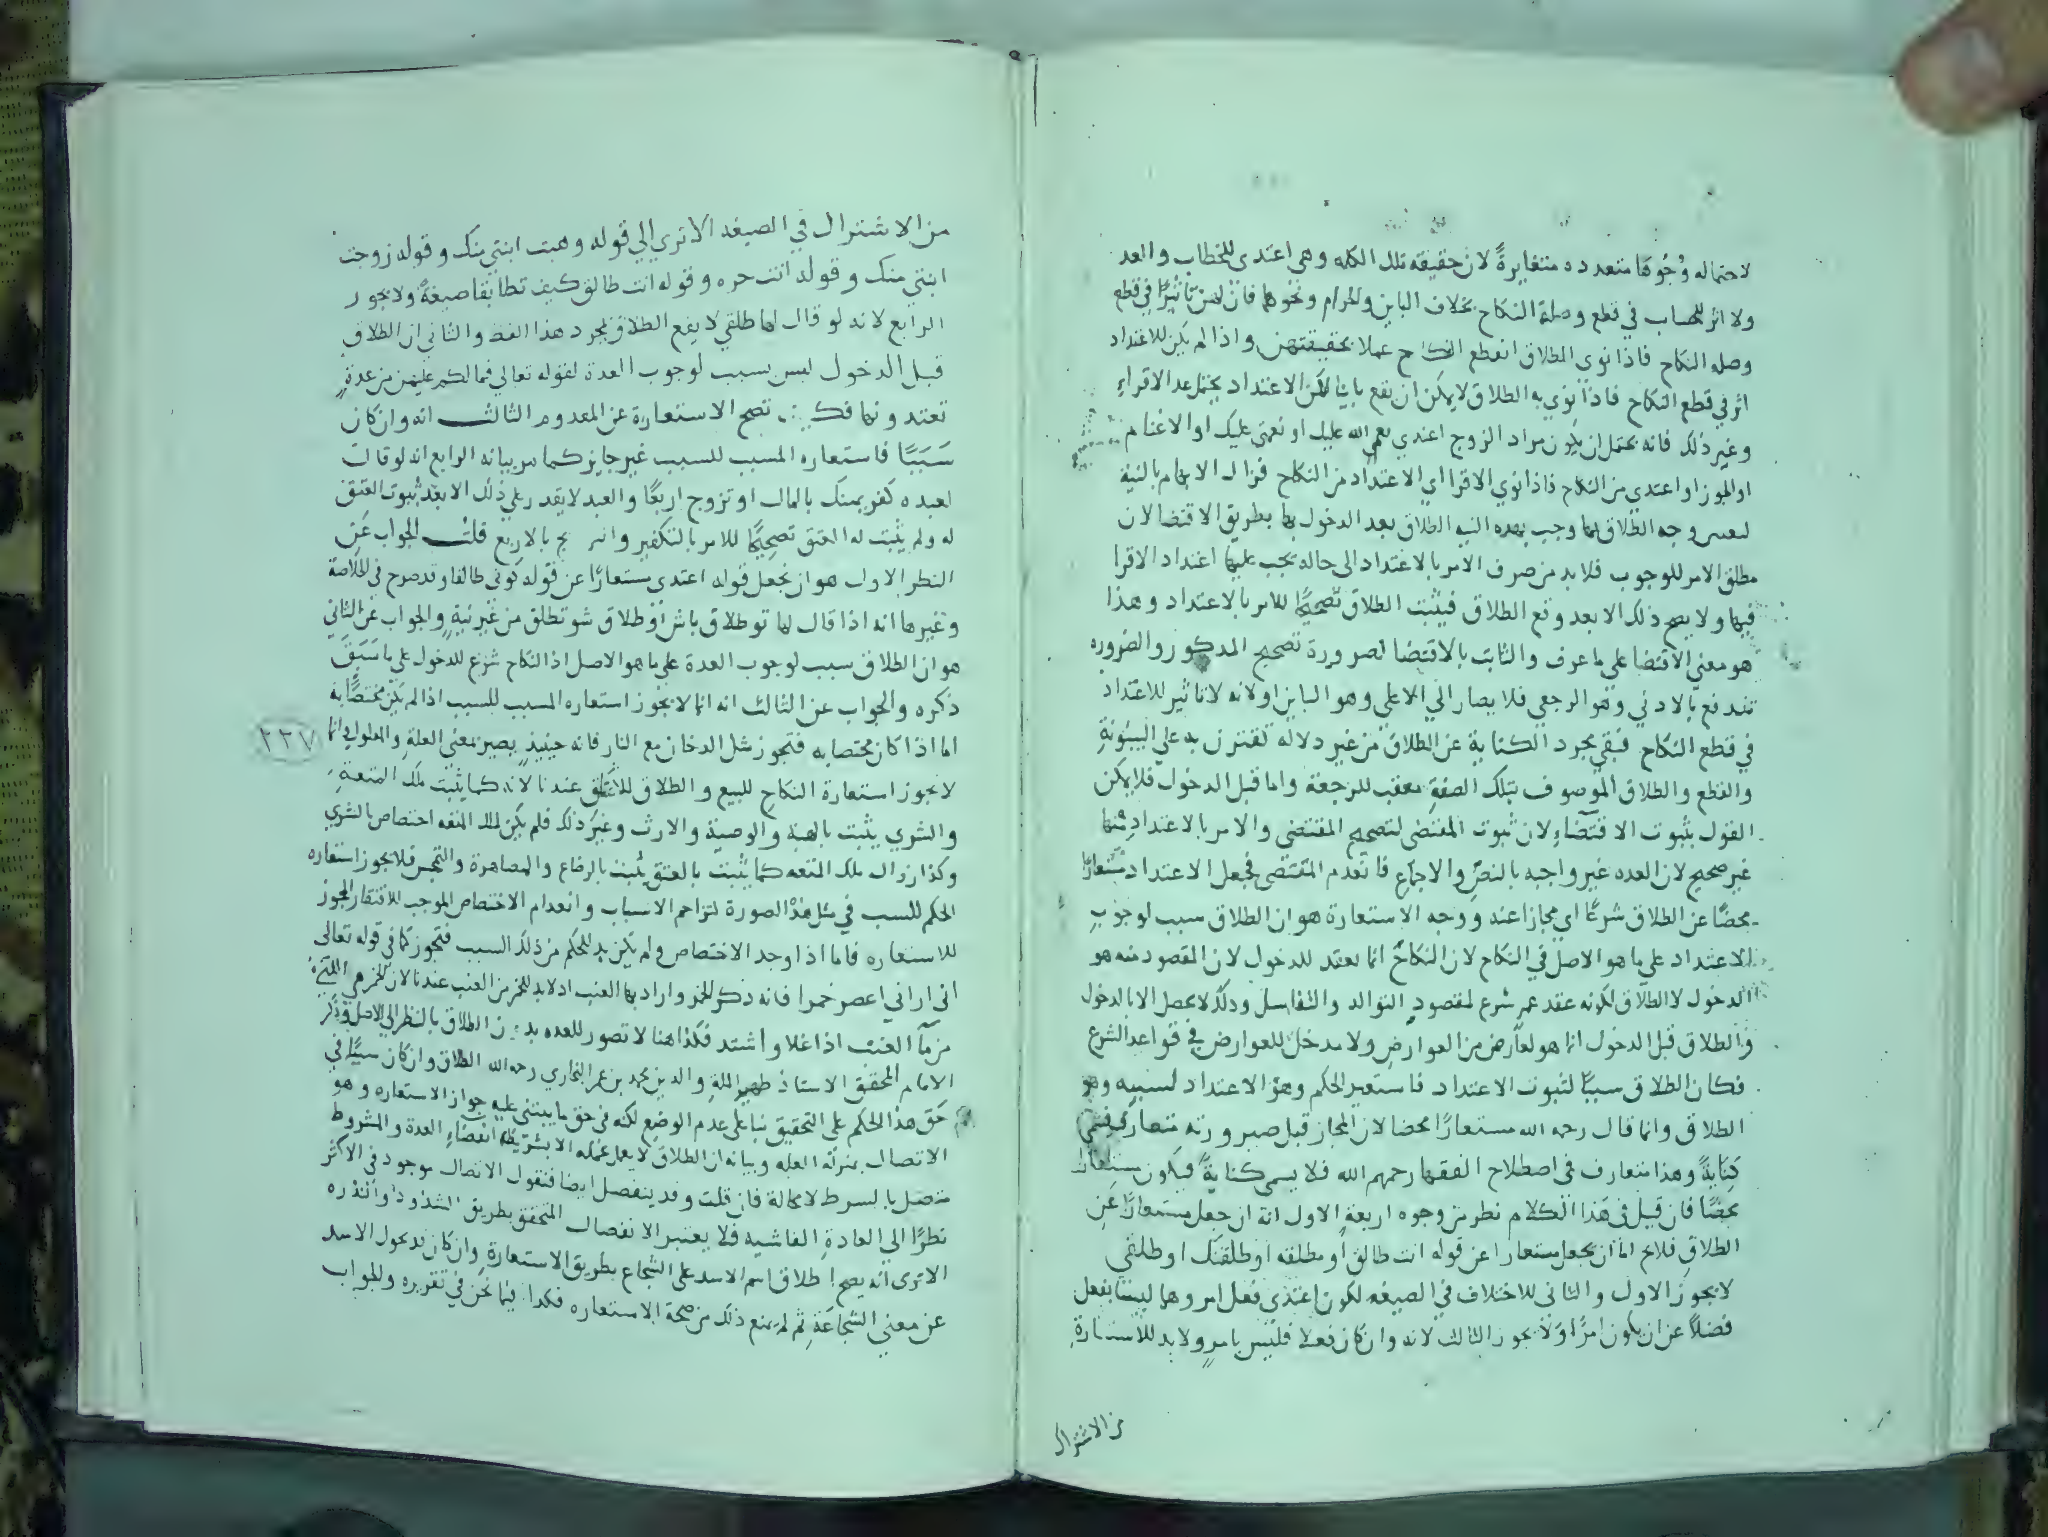 لاحتماله وُجُوهًا متعدده متغايرةً لان حقيقه تلك الكلمه وهي اعتدي للخطاب والعد
ولا اثر للحساب في قطع وصلة النكاح بخلاف الباين والحرام ونحوهما فان لهن تأثيرًا في قطع
وصله النكاح فاذا نوى الطلاق انقطع النكاح عملا بحقيقتهن واذا لم يكن للاعتداد
اثر في قطع النكاح فاذا نوي به الطلاق لا يمكن ان يقع باينا لكن الاعتداد يحتمل عد الاقراء
وغير ذلك فانه يحتمل ان يكون مراد الزوج اعتدي نعم الله عليك او نعمتي عليك او الاغنام
او الجوز او اعتدي من النكاح فاذا نوي الاقرا اي الاعتداد من النكاح فزال الابهام بالنية
وجه الطلاق بها وجب بهذه النيه الطلاق بعد الدخول بها بطريق الاقتضا لان
مطلق الامر للوجوب فلا بد من صرف الامر بالاعتداد الى حاله يجب عليها اعتداد الاقرا
فيها ولا يصح ذلك الا بعد وقع الطلاق فيثبت الطلاق تصحيحًا للامر بالاعتداد وهذا
هو معني الاقتضا على ما عرف والثابت بالاقتضا لضرورة تصحيح المذكور والضروره
تندفع بالادني وهو الرجعي فلا يصار الي الاعلى وهو الباين او لانه لا تاثير للاعتداد
في قطع النكاح فبقي مجرد الكناية عن الطلاق من غير دلاله تقترن به علي البينونة
والقطع والطلاق الموصوف بتلك الصفة معقب للرجعة واما قبل الدخول فلا يمكن
القول بثبوت الاقتضاء لان ثبوت المقتضى لتصحيح المقتضي والامر بالاعتداد منها
غير صحيح لان العده غير واجبه بالنص والاجماع فانعدم المقتضى فجعل الاعتداد مستعارًا
محضًا عن الطلاق شرعًا اي مجازا عنه ووجه الاستعارة هو ان الطلاق سبب لوجوب
الاعتداد علي ما هو الاصل في النكاح لان النكاح انما يعقد للدخول لان المقصود منه هو
الدخول لا الطلاق لكونه عقد عمر شرع لمقصود التوالد والتناسل وذلك لا يحصل الا بالدخول
والطلاق قبل الدخول انما هو لعارض من العوارض ولا مدخل للعوارض في قواعد الشرع
فكان الطلاق سببًا لثبوت الاعتداد فاستعير الحكم وهو الاعتداد لسببه وهو
الطلاق وانما قال رحمه الله مستعارًا محضا لان المجاز قبل صيرورته متعارفا يسمي
كنايةً وهذا متعارف في اصطلاح الفقها رحمهم الله فلا يسمى كنايةً فيكون مستعارًا
محضًا فان قيل في هذا الكلام نظر من وجوه اربعة الاول انه ان جعل مستعارًا عن
الطلاق فلا يخ اما ان يجعل مستعارا عن قوله انت طالق او مطلقه او طلقتك او طلقي
لا يجوز الاول والثاني للاختلاف في الصيغه لكون اعتدي فعل امر وهما ليسا بفعل
فضلاً عن ان يكون امرًا ولا يجوز الثالث لانه وان كان فعلا فليس بامر ولا بد للاستعارة
من الاشتراك
من الاشتراك في الصيغه الا تري الي قوله وهبت ابنتي منك وقوله زوجت
ابنتي منك وقوله انت حره وقوله انت طالق كيف تطابقا صيغةً ولا يجوز
الرابع لانه لو قال لها طلقي لا يقع الطلاق بمجرد هذا اللفظ والثاني ان الطلاق
قبل الدخول ليس بسبب لوجوب العدة لقوله تعالي فما لكم عليهن من عدة
تعتدونها فكيف تصح الاستعارة عن المعدوم الثالث انه وان كان
سَبَبًا فاستعاره المسبب للسبب غير جايز كما مر بيانه الرابع انه لو قال
لعبده كفر يمينك بالمال او تزوج اربعًا والعبد لا يقدر علي ذلك الا بعد ثبوت العتق
له ولم يثبت له العتق تصحيحًا للامر بالتكفير والتزوج بالاربع قلت الجواب عن
النظر الاول هو ان يجعل قوله اعتدى مستعارًا عن قوله كوني طالقا وقد صرح في الخلاصة
وغيرها انه اذا قال لها تو طلاق باش او طلاق شو تطلق من غير نية والجواب عن الثاني
هو ان الطلاق سبب لوجوب العدة علي ما هو الاصل اذ النكاح شرع للدخول علي ما سَبَقَ
ذكره والجواب عن الثالث انه انما لا يجوز استعاره المسبب للسبب اذا لم يكن مختصًا به
اما اذا كان مختصا به فتجوز مثل الدخان مع النار فانه حينيذ يصير بمعنى العلة والمعلول انما
٢٢٧
لا يجوز استعارة النكاح للبيع والطلاق للعتق عندنا لانه كما يثبت ملك المتعة
والشري يثبت بالهبة والوصية والارث وغير ذلك فلم يكن لملك المتعه اختصاص بالشري
وكذا زوال ملك المتعه كما يثبت بالعتق يثبت بالرضاع والمصاهرة والتمجس فلا يجوز استعاره
الحكم للسبب في مثل هذا الصورة لتزاحم الاسباب وانعدام الاختصاص الموجب للافتقار المجوز
للاستعاره فاما اذا وجد الاختصاص ولم يكن بد للحكم من ذلك السبب فتجوز كما في قوله تعالى
اني اراني اعصر خمرا فانه ذكر الخمر واراد بها العنب اذ لا بد للخمر من العنب عندنا لان الخمر هي النيّ
من مآ العنب اذا غلا واشتد فكذا هنا لا تصور للعده بدون الطلاق بالنظر الي الاصل وذكر
الامام المحقق الاستاذ ظهير الملة والدين محمد بن عمر البخاري رحمه الله الطلاق وان كان سببًا في
حق هذا الحكم على التحقيق بنا على عدم الوضع لكنه في حق ما يبتني عليه جواز الاستعاره وهو
الاتصال بمنزلة العله وبيانه ان الطلاق لا يعمل عمله الا بشريطة انقضاء العدة والمشروط
متصل بالشرط لا محالة فان قلت وقد ينفصل ايضا فنقول الاتصال موجود في الاكثر
نظرًا الي العادة الفاشيه فلا يعتبر الانفصال المتحقق بطريق الشذوذ والندره
الا تري انه يصح اطلاق اسم الاسد على الشجاع بطريق الاستعارة وان كان قد يحول الاسد
عن معني الشجاعة ثم لم يمنع ذلك من صحة الاستعاره فكذا فيما نحن في تقريره والجواب